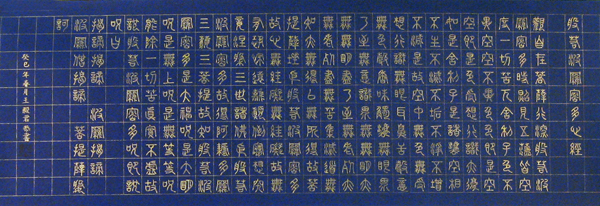 般若波羅蜜多心經
觀自在菩薩行深般若波
羅蜜多時照見五蘊皆空
度一切苦厄舍利子色不
異空空不異色色即是空
空即是色受想行識亦復
如是舍利子是諸法空相
不生不滅不垢不淨不增
不減是故空中無色無受
想行識無眼耳鼻舌身意
無色聲香味觸法無眼界
乃至無意識界無無明亦
無無明盡乃至無老死亦
無老死盡無苦集滅道無
智亦無得以無所得故菩
提薩埵依般若波羅蜜多
故心無罣礙無罣礙故無
有恐怖遠離顛倒夢想究
竟涅槃三世諸佛依般若
波羅蜜多故得阿耨多羅
三藐三菩提故知般若波
羅蜜多是大神咒是大明
咒是無上咒是無等等咒
能除一切苦真實不虛故
說般若波羅蜜多咒即說
咒曰
揭諦揭諦 波羅揭諦
波羅僧揭諦 菩提薩婆
訶
癸巳年春月王